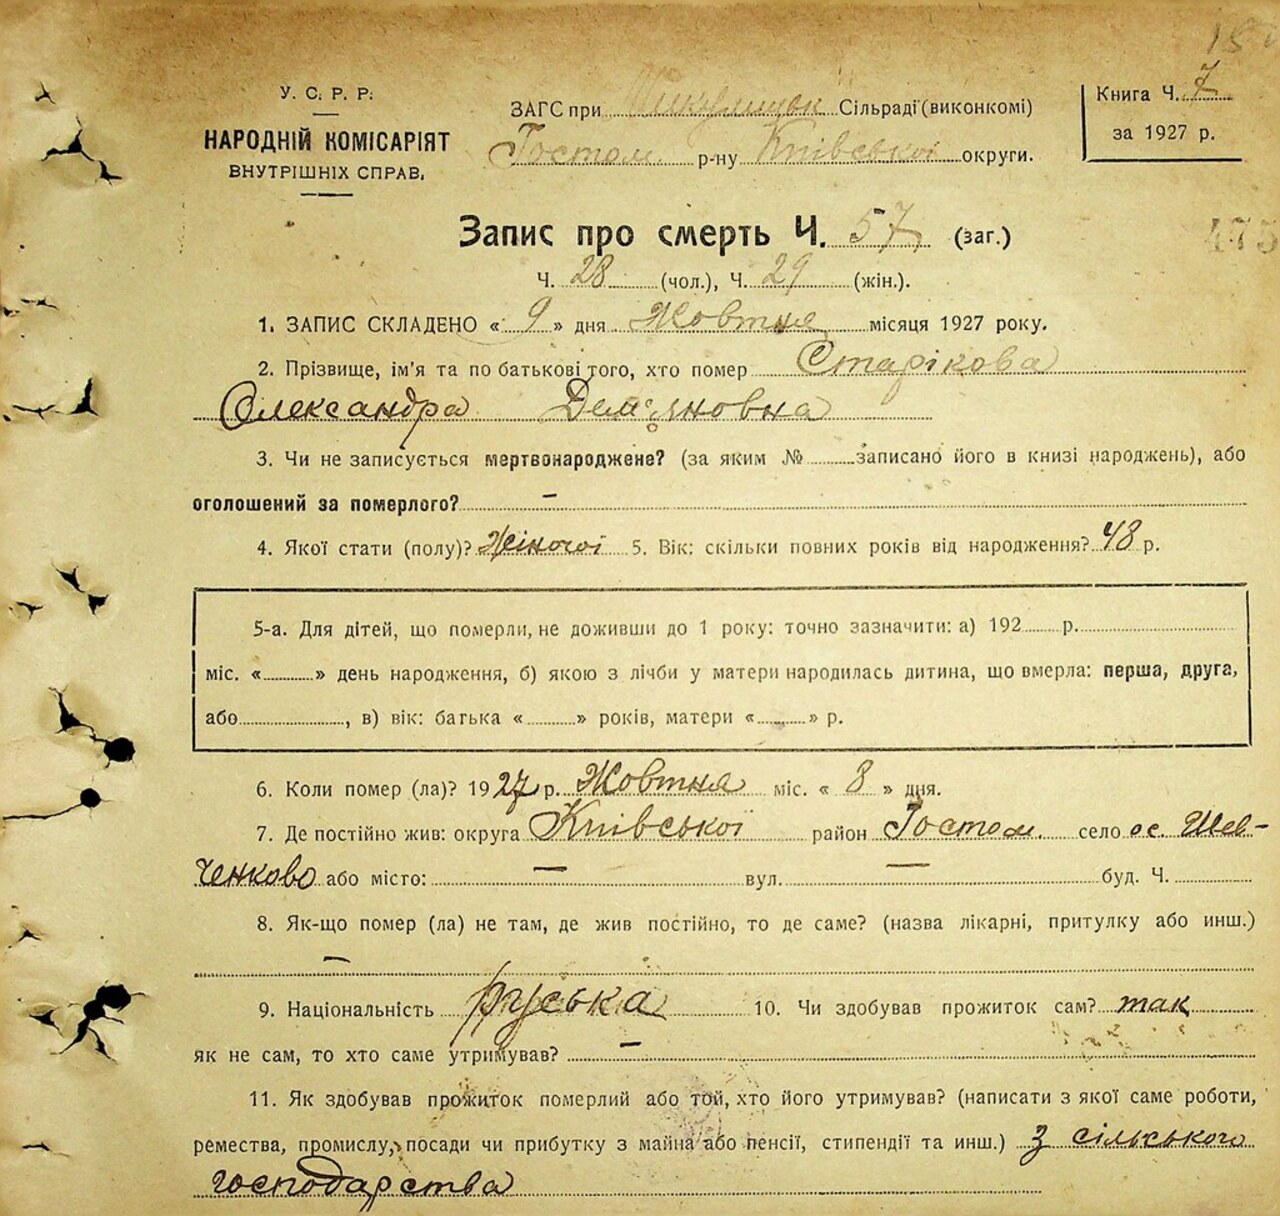 У. С. Р. Р.
НАРОДНІЙ КОМІСАРІЯТ
ВНУТРІШНІХ СПРАВ.
ЗАГС при Сільраді (виконкомі)
Гостом. р-ну Київської округи.
Книга Ч. 7
за 1927 р.
Запис про смерть Ч. 57 (заг.)
475
Ч. 28 (чол.), Ч. 29 (жін.).
1. ЗАПИС СКЛАДЕНО « 9 » дня Жовтня місяця 1927 року.
2. Прізвище, ім'я та по батькові того, хто помер Старікова
Олександра Дем'яновна
3. Чи не записується мертвонароджене? (за яким № записано його в книзі народжень), або
оголошений за померлого? –
4. Якої стати (полу)? Жіночої 5. Вік: скільки повних років від народження? 48 р.
5-а. Для дітей, що померли, не доживши до 1 року: точно зазначити: а) 192 р.
міс. « » день народження, б) якою з лічби у матери народилась дитина, що вмерла: перша, друга,
або , в) вік: батька « » років, матери « » р.
6. Коли помер (ла)? 1927 р. Жовтня міс. « 8 » дня.
7. Де постійно жив: округа Київської район Гостом. село ос. Шев-
ченково або місто: — вул. — буд. Ч.
8. Як-що помер (ла) не там, де жив постійно, то де саме? (назва лікарні, притулку або инш.)
–
9. Національність руська 10. Чи здобував прожиток сам? так
як не сам, то хто саме утримував? –
11. Як здобував прожиток померлий або той, хто його утримував? (написати з якої саме роботи,
ремества, промислу, посади чи прибутку з майна або пенсії, стипендії та инш.) З сільського
господарства